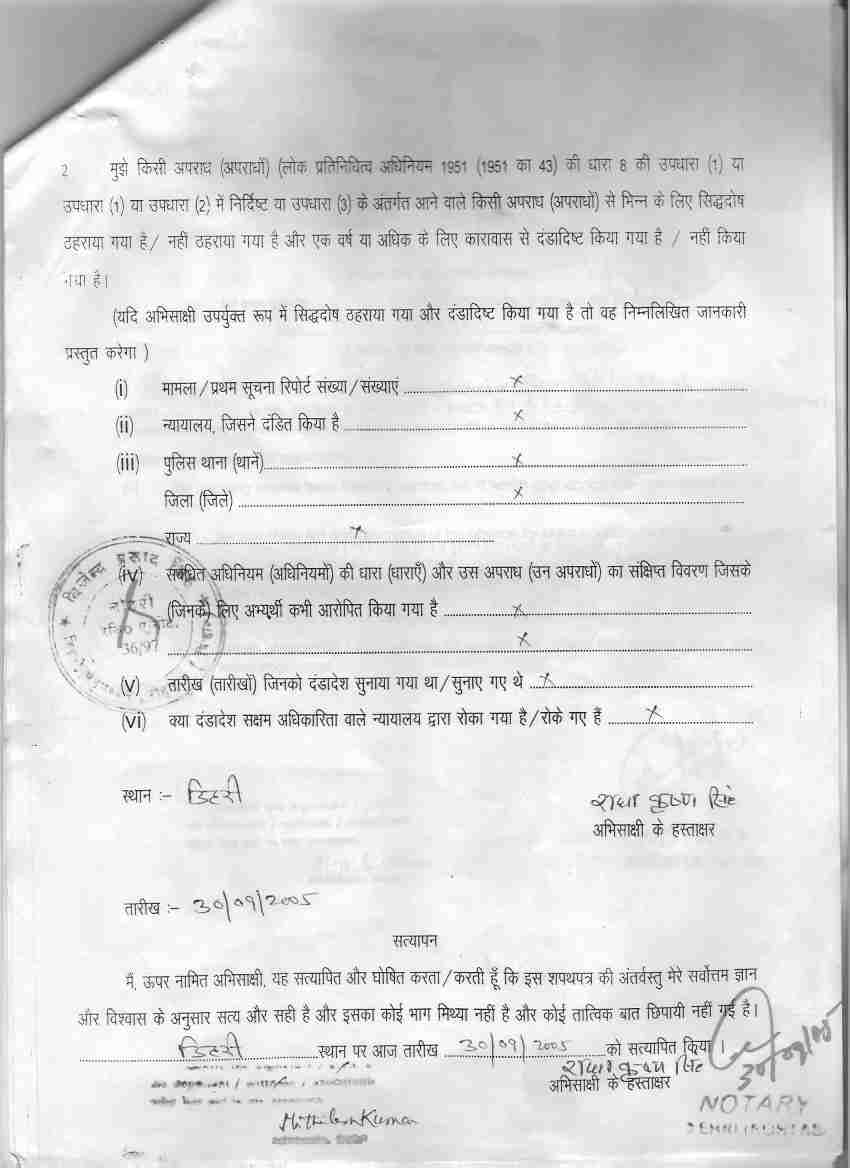 2 मुझे किसी अपराध (अपराधों) (लोक प्रतिनिधित्व अधिनियम 1951 (1951 का 43) की धारा 8 की उपधारा (1) या
उपधारा (1) या उपधारा (2) में निर्दिष्ट या उपधारा (3) के अंतर्गत आने वाले किसी अपराध (अपराधों) से भिन्न के लिए सिद्धदोष
ठहराया गया है/ नहीं ठहराया गया है और एक वर्ष या अधिक के लिए कारावास से दंडादिष्ट किया गया है / नहीं किया
गया है।
(यदि अभिसाक्षी उपर्युक्त रूप में सिद्धदोष ठहराया गया और दंडादिष्ट किया गया है तो वह निम्नलिखित जानकारी
प्रस्तुत करेगा )
(i) मामला/प्रथम सूचना रिपोर्ट संख्या/संख्याएं ........ x ........
(ii) न्यायालय, जिसने दंडित किया है ........ x ........
(iii) पुलिस थाना (थानें)........ x ........
जिला (जिले) ........ x ........
राज्य ........ x ........
(iv) संबंधित अधिनियम (अधिनियमों) की धारा (धाराएँ) और उस अपराध (उन अपराधों) का संक्षिप्त विवरण जिसके
(जिनके) लिए अभ्यर्थी कभी आरोपित किया गया है ........ x ........
........ x ........
(v) तारीख (तारीखों) जिनको दंडादेश सुनाया गया था/सुनाए गए थे ... x ........
(vi) क्या दंडादेश सक्षम अधिकारिता वाले न्यायालय द्वारा रोका गया है/रोके गए हैं ........ x ........
नोटरी
36/97
स्थान :- डिहरी
राधा कृष्ण सिंह
अभिसाक्षी के हस्ताक्षर
तारीख :- 30/09/2005
सत्यापन
मैं, ऊपर नामित अभिसाक्षी, यह सत्यापित और घोषित करता/करती हूँ कि इस शपथपत्र की अंतर्वस्तु मेरे सर्वोत्तम ज्ञान
और विश्वास के अनुसार सत्य और सही है और इसका कोई भाग मिथ्या नहीं है और कोई तात्विक बात छिपायी नहीं गई है।
........ डिहरी ........ स्थान पर आज तारीख ... 30/09/2005 ........ को सत्यापित किया।
राधा कृष्ण सिंह
अभिसाक्षी के हस्ताक्षर
30/09/05
NOTARY
Mithilesh Kumar